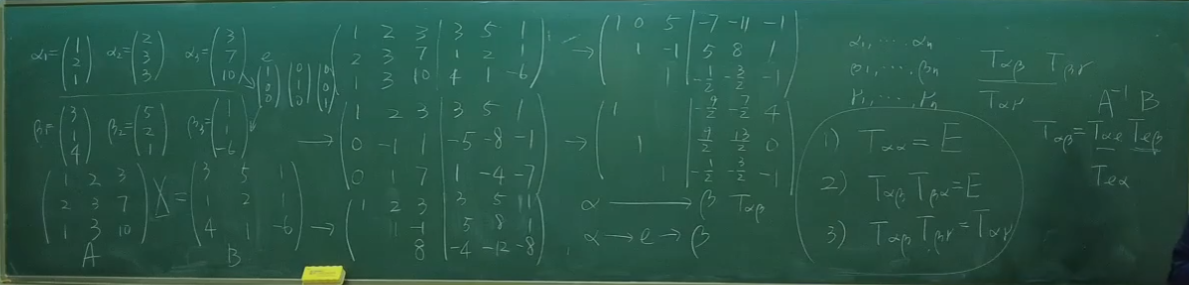 α₁ = (1 2 1) α₂ = (2 3 3) α₃ = (3 7 10)
e (1 0 0) (0 1 0) (0 0 1)
β₁ = (3 1 4) β₂ = (5 2 1) β₃ = (1 1 -6)
(1 2 3
2 3 7
1 3 10) X = (3 5 1
1 2 1
4 1 -6)
A B
(1 2 3 | 3 5 1
2 3 7 | 1 2 1
1 3 10 | 4 1 -6)
→ (1 2 3 | 3 5 1
0 -1 1 | -5 -8 -1
0 1 7 | 1 -4 -7)
→ (1 2 3 | 3 5 1
1 -1 | 5 8 1
8 | -4 -12 -8)
→ (1 0 5 | -7 -11 -1
1 -1 | 5 8 1
1 | -1/2 -3/2 -1)
→ (1 | -9/2 -7/2 4
1 | 9/2 13/2 0
1 | -1/2 -3/2 -1)
α → β Tαβ
α → e → β
α₁, ⋯ αₙ
β₁, ⋯ βₙ
γ₁, ⋯ γₙ
Tαβ Tβγ
Tαγ
1) Tαα = E
2) Tαβ Tβα = E
3) Tαβ Tβγ = Tαγ
A⁻¹ B
Tαβ = Tαe Teβ
Teα